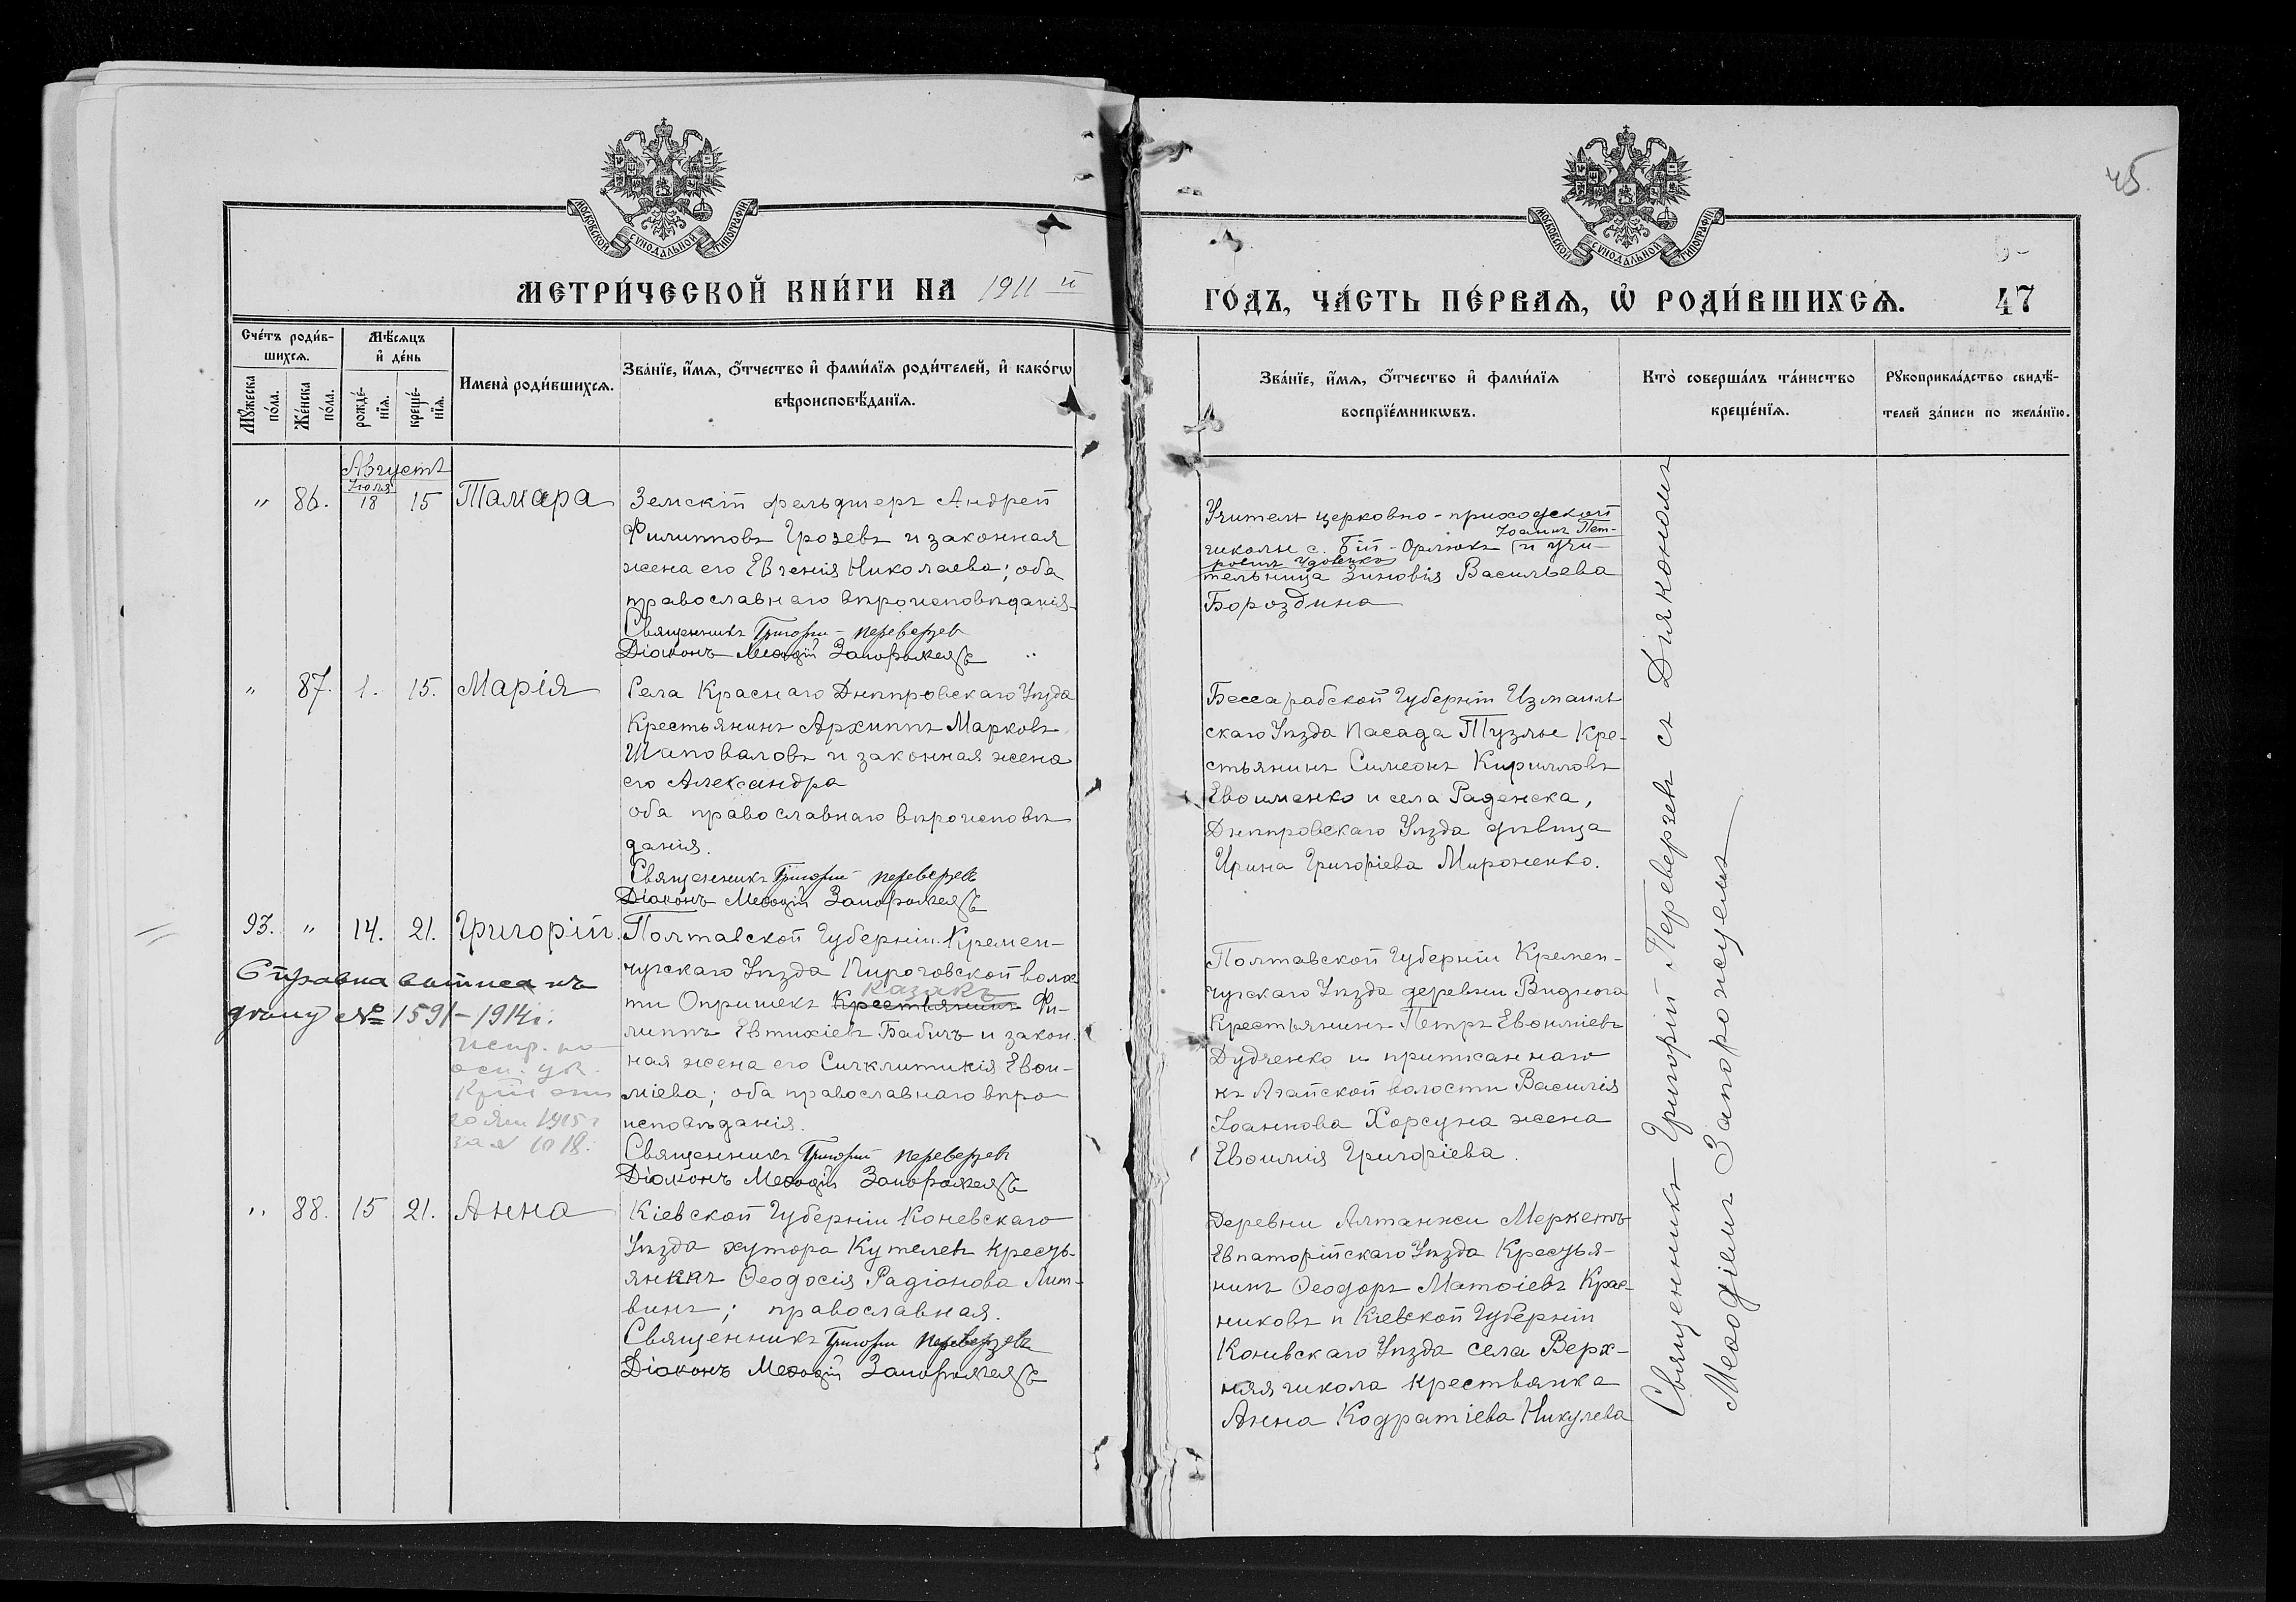 45.
МОСКОВСКОЙ СѴНОДАЛЬНОЙ ТИПОГРАФІИ
МОСКОВСКОЙ СѴНОДАЛЬНОЙ ТИПОГРАФІИ
МЕТРИ́ЧЕСКОЙ КНИ́ГИ НА 1911 й
ГО́ДЪ, ЧА́СТЬ ПЕ́РВАѦ, Ѡ҆ РОДИ́ВШИХСѦ. 47
Сче́тъ роди́в-
шихсѧ.
Мꙋжеска
по́ла.
Же́нска
по́ла.
Мѣ́сѧцъ
и҆ де́нь
рожде́-
нїѧ.
креще́-
нїѧ.
Имена̀ роди́вшихсѧ.
Зва́нїе, и҆́мѧ, ѻ҆́тчество и҆ фами́лїѧ роди́телей, и҆ како́гѡ
вѣроисповѣ́данїѧ.
Зва́нїе, и҆́мѧ, ѻ҆́тчество и҆ фами́лїѧ
воспрїе́мникѡвъ.
Кто̀ соверша́лъ та́инство
креще́нїѧ.
Рꙋкоприкла́дство свидѣ́-
телей за́писи по жела́нїю.
Августъ
Іюля
" 86. 18 15 Тамара
Земскій фельдшеръ Андрей
Филипповъ Грозевъ и законная
жена его Евгенія Николаева; оба
православнаго вѣроисповѣданія.
Священникъ Григорій Переверзев
Діаконъ Меѳодій Запорожецъ
Учитель церковно-приходской
школы с. Бій-Орлюкъ Іоаннъ Пет-
ровичъ Удовенко и учи-
тельница Зиновія Васильева
Бороздина
" 87. 1. 15. Марія
Села Краснаго Днѣпровскаго Уѣзда
Крестьянинъ Архиппъ Марковъ
Шаповаловъ и законная жена
его Александра
оба православнаго вѣроисповѣ
данія.
Священникъ Григорій Переверзев
Діаконъ Меѳодій Запорожецъ
Бессарабской Губерніи Измаиль
скаго Уѣзда Пасада Тузлы Кре-
стьянинъ Симеонъ Кирилловъ
Евѳименко и села Раденска,
Днѣпровскаго Уѣзда дѣвица
Ирина Григоріева Мироненко.
93. " 14. 21. Григорій.
Полтавской Губерніи Кремен-
чугскаго Уѣзда Пироговской волос
ти Опришекъ Крестьянинъ Казакъ Фи-
липпъ Евтихіевъ Бабичъ и закон.
ная жена его Сигклитикія Евѳи-
міева; оба православнаго вѣро
исповѣданія.
Священникъ Григорій Переверзев
Діаконъ Меѳодій Запорожецъ
Справка выписа къ
дѣлу № 1591-1914 г.
испр. на
осн. ук.
1915 г
за №
Полтавской Губерніи Кремен-
чугскаго Уѣзда деревни Виднога
Крестьянинъ Петръ Евѳиміевъ
Дудченко и приписаннаго
къ Агайской волости Василія
Іоаннова Хорсуна жена
Евѳимія Григоріева.
" 88. 15 21. Анна
Кіевской Губерніи Коневскаго
Уѣзда хутора Кутелевъ Кресть-
янка Ѳеодосія Радіонова Лит-
винъ; православная.
Священникъ Григорій Переверзевъ
Діаконъ Меѳодій Запорожецъ
Деревни Алтанжи Меркетъ
Евпаторійскаго Уѣзда Кресть-
нинъ Ѳеодоръ Матѳіевъ Крас-
никовъ и Кіевской Губерніи
Коневскаго Уѣзда села Верх-
няя школа крестьянка
Анна Кодратіева Никулева
Священникъ Григорій Переверзевъ съ Діякономъ
Меѳодіемъ Запорожцемъ